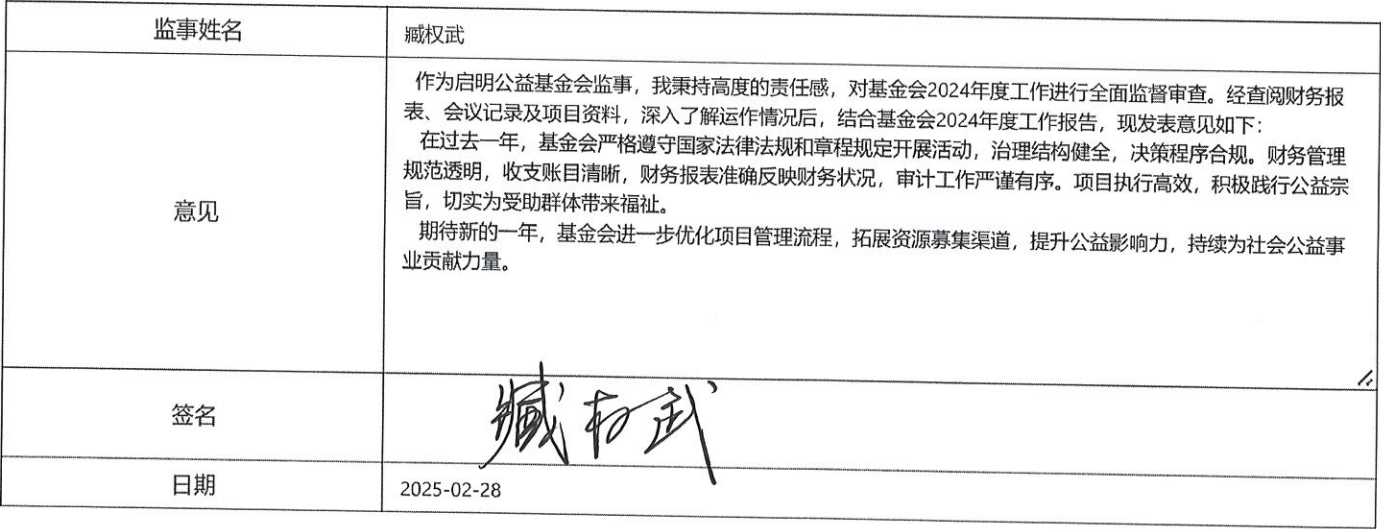 监事姓名
臧权武
意见
作为启明公益基金会监事，我秉持高度的责任感，对基金会2024年度工作进行全面监督审查。经查阅财务报
表、会议记录及项目资料，深入了解运作情况后，结合基金会2024年度工作报告，现发表意见如下：
在过去一年，基金会严格遵守国家法律法规和章程规定开展活动，治理结构健全，决策程序合规。财务管理
规范透明，收支账目清晰，财务报表准确反映财务状况，审计工作严谨有序。项目执行高效，积极践行公益宗
旨，切实为受助群体带来福祉。
期待新的一年，基金会进一步优化项目管理流程，拓展资源募集渠道，提升公益影响力，持续为社会公益事
业贡献力量。
签名
臧权武
日期
2025-02-28